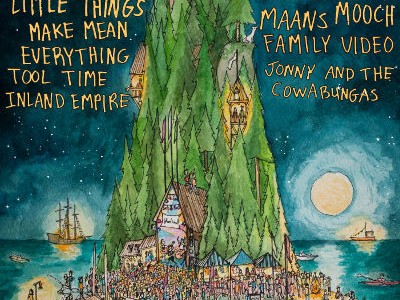 LITTLE THINGS
MAKE MEAN
EVERYTHING
TOOL TIME
INLAND EMPIRE
MAANS MOOCH
FAMILY VIDEO
JONNY AND THE
COWABUNGAS